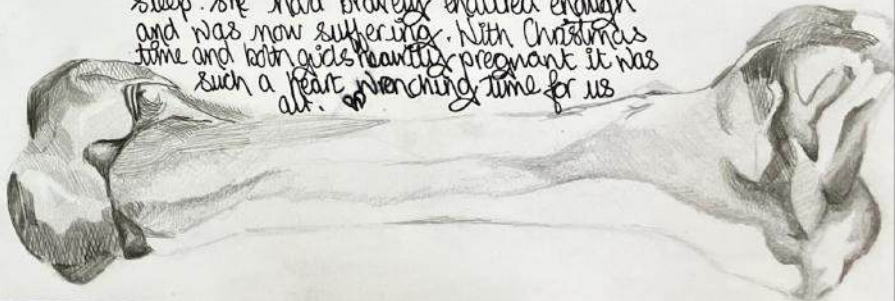 sleep. She had bravely endured enough
and was now suffering. With Christmas
time and both girls heavily pregnant it was
such a heart wrenching time for us
all.